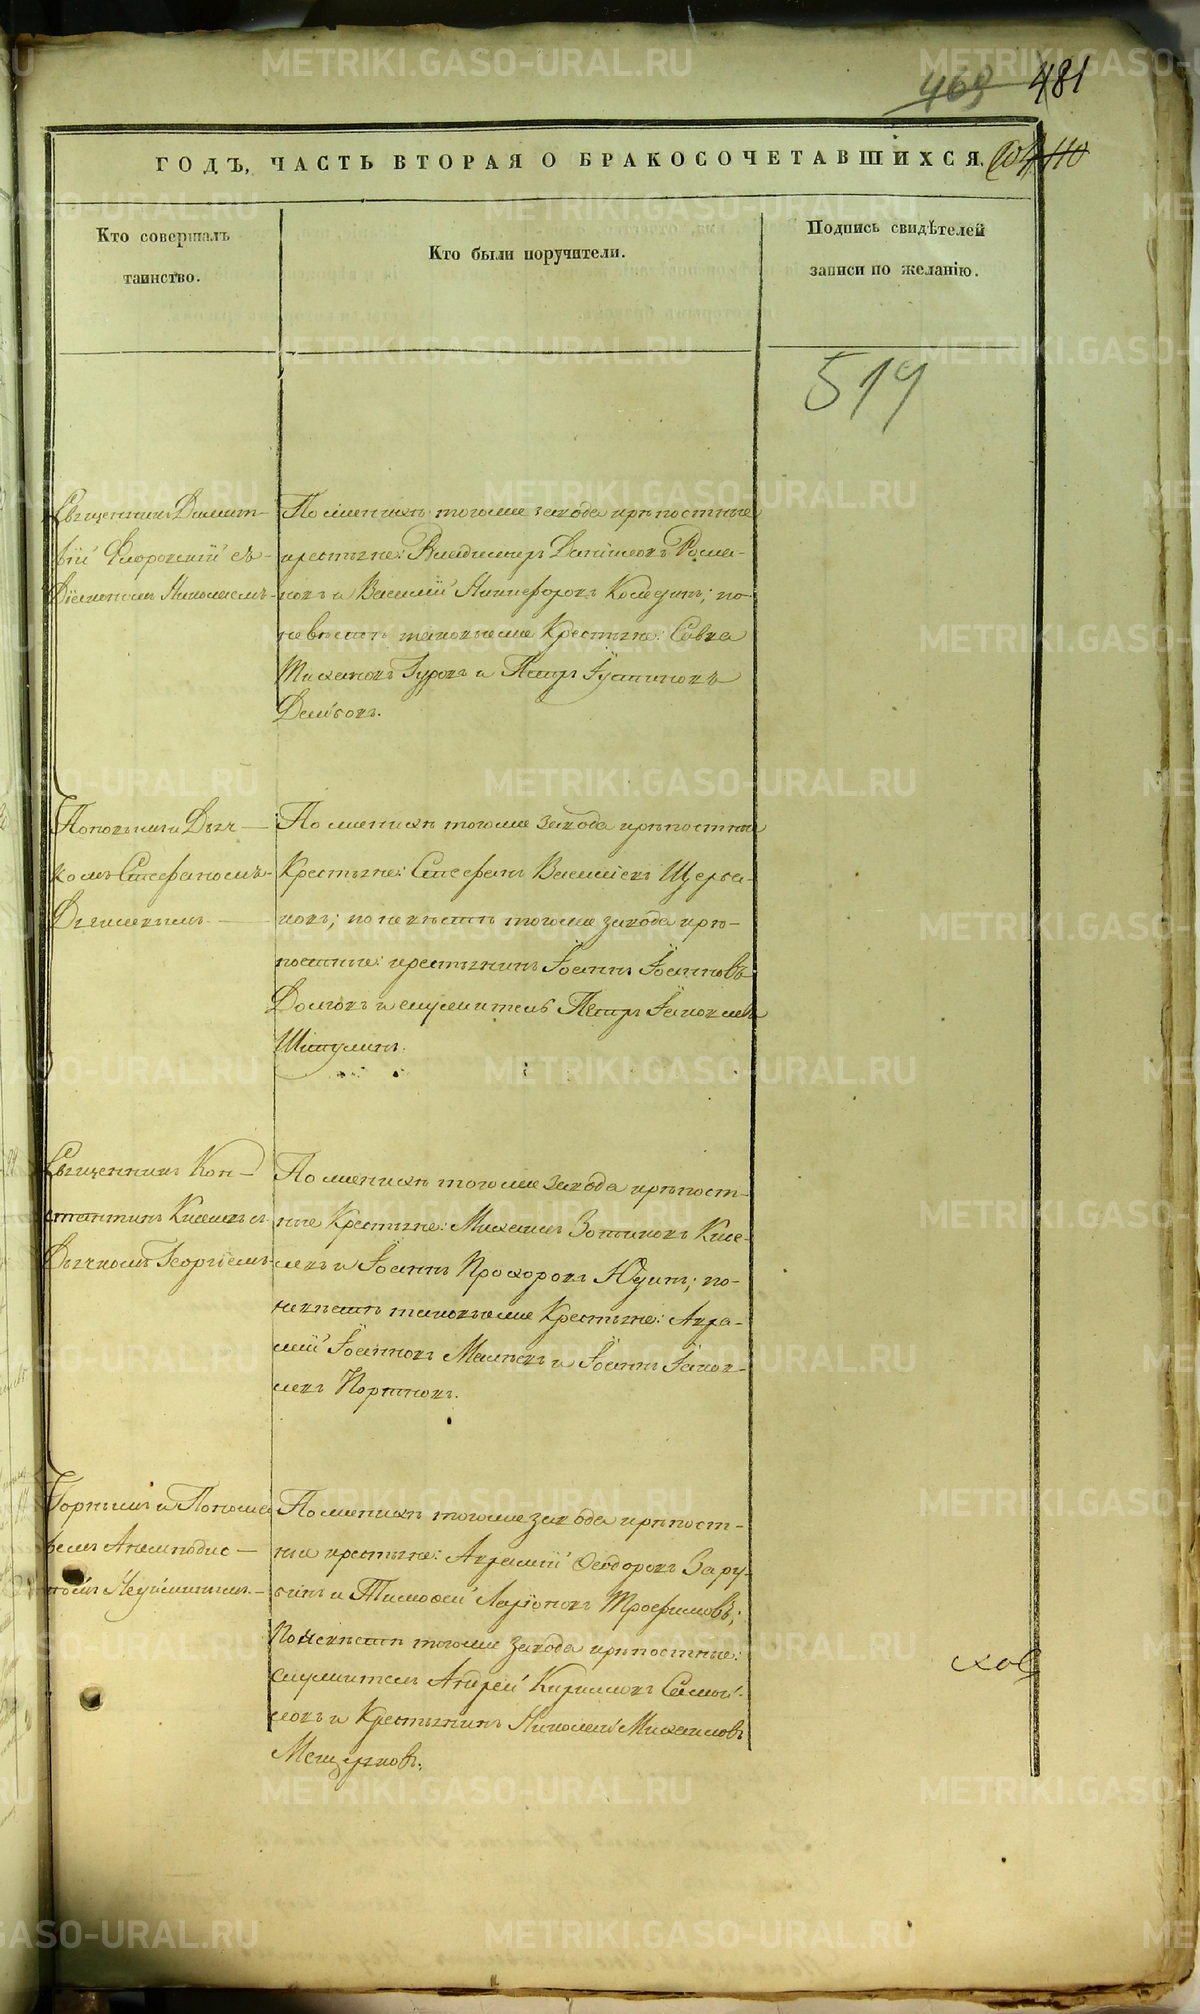 469 481
ГОДЪ, ЧАСТЬ ВТОРАЯ О БРАКОСОЧЕТАВШИХСЯ. 110
Кто совершалъ
таинство.
Кто были поручители.
Подпись свидѣтелей
записи по желанію.
519
Священникъ Димит-
рій Флоровскій съ
Діакономъ Николаемъ
По женихѣ тогоже завода крѣпостные
крестьяне: Владимиръ Даниловъ Рома-
новъ и Василій Никифоровъ Колегинъ; по
невѣстѣ таковыеже Крестьяне: Савва
Гуровъ и Петръ Іустиновъ
По женихѣ тогоже завода крѣпостные
Крестьяне: Стефанъ Васильевъ Щерба-
ковъ; по невѣстѣ тогоже завода крѣ-
постные: крестьянинъ Іоаннъ Іоанновъ
Долговъ и служитель Петръ Іаковлевъ
Шипулинъ.
Священникъ Кон-
стантинъ Киселевъ съ
Дьячкомъ Георгіемъ
По женихѣ тогоже завода крѣпост-
ные Крестьяне: Михаилъ Зотиковъ Кисе-
левъ и Іоаннъ Прохоровъ Юдинъ; по
невѣстѣ таковыеже Крестьяне: Авра-
мій Іоанновъ и Іоаннъ Іаков-
левъ Портновъ.
По женихѣ тогоже завода крѣпост-
ные крестьяне: Аврамій Ѳеодоровъ Зару-
бинъ и Тимоѳей Ларіоновъ Трофимовъ;
По невѣстѣ тогоже завода крѣпостные:
служитель Андрей Кириловъ Самой-
ловъ и Крестьянинъ Николай Михаиловъ
Мещеряковъ.
METRIKI.GASO-URAL.RU